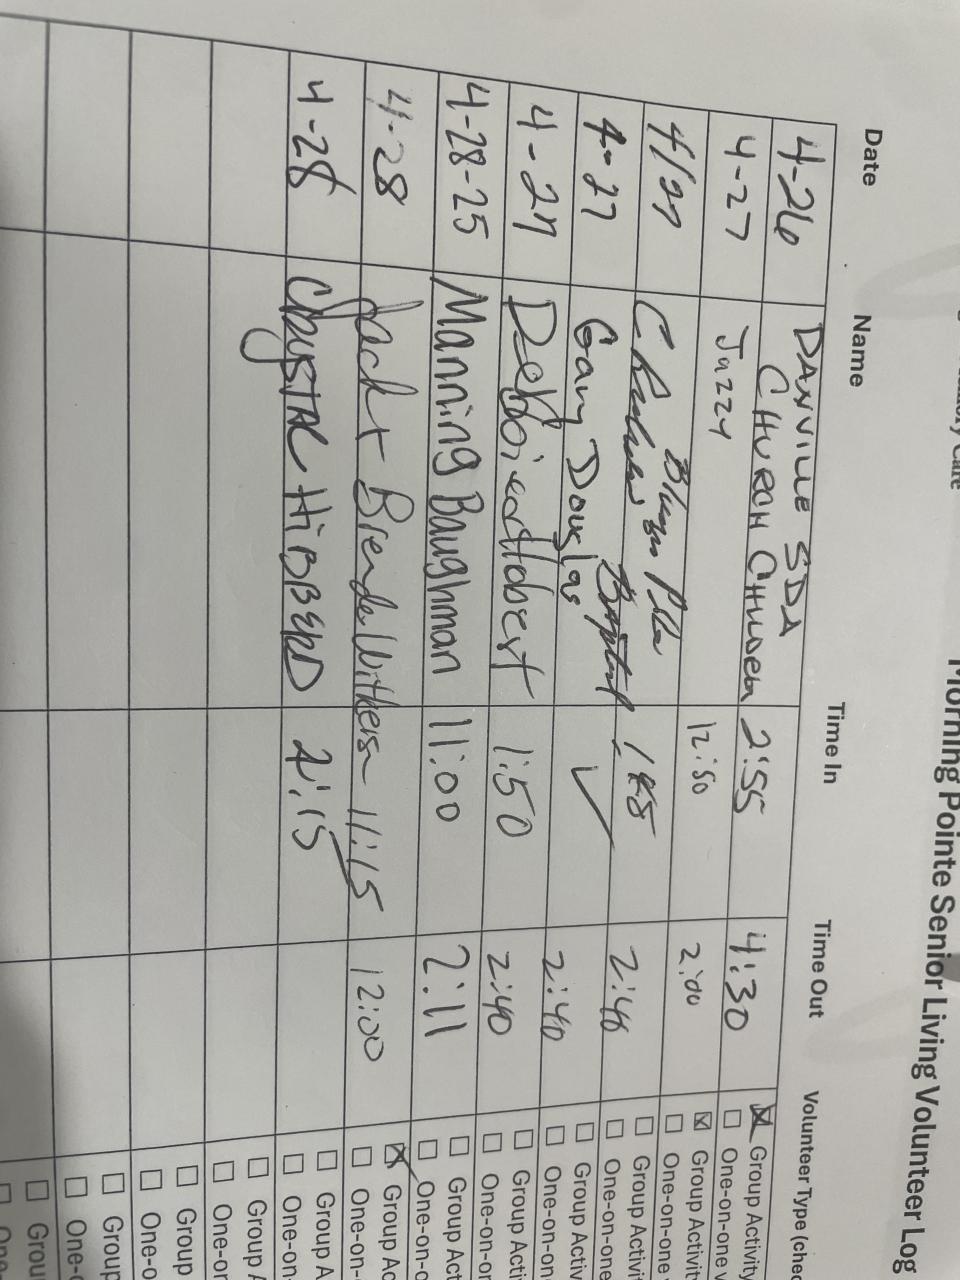 Morning Pointe Senior Living Volunteer Log
Date Name Time In Time Out Volunteer Type
4-26 DANVILLE SDA CHURCH 2:55 4:30 Group Activity
One-on-one
4-27 Jazzy 12:50 2:00 Group Activit
One-on-one
4/27 2:40 Group Activi
One-on-one
4-27 Gary Douglas ✓ 2:40 Group Activ
One-on-on
4-27 Debbie 1:50 2:40 Group Acti
One-on-or
4-28-25 Manning Baughman 11:00 2:11 Group Act
One-on-c
4-28 Jack + Brenda Withers 11:15 12:00 Group Ac
One-on-
4-28 Crystal HiBBERD 2:15 Group A
One-on-
Group A
One-o
Group
One-o
Group
One-
Grou
One